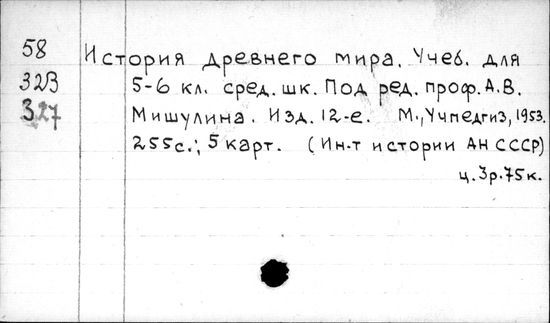 58 История древнего мира. Учеб. для
323 5-6 кл. сред. шк. Под ред. проф. А.В.
327 Мишулина. Изд. 12-е. М., Учпедгиз, 1953.
255с.; 5 карт. (Ин-т истории АН СССР)
ц. 3р. 75к.